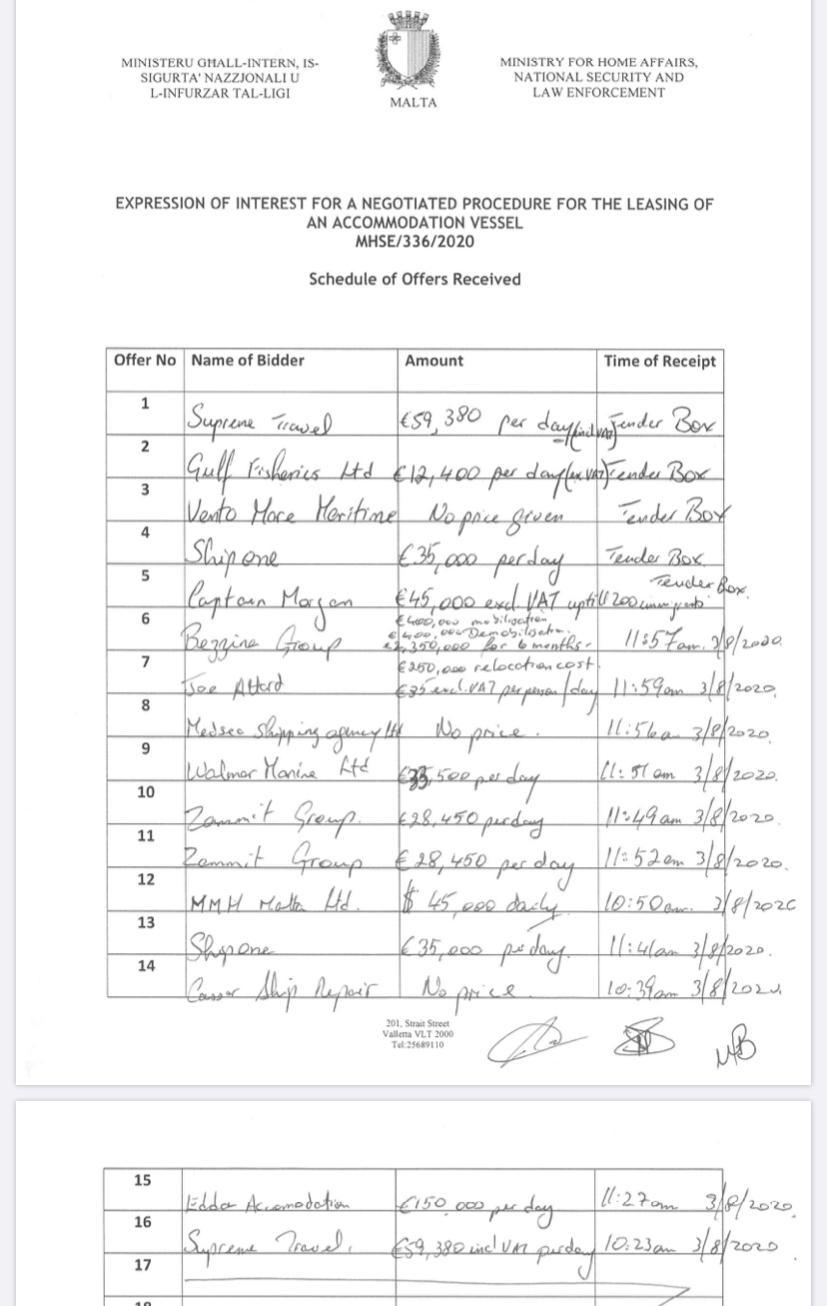 MINISTERU GĦALL-INTERN, IS-
SIGURTA' NAZZJONALI U
L-INFURZAR TAL-LIĠI
MALTA
MINISTRY FOR HOME AFFAIRS,
NATIONAL SECURITY AND
LAW ENFORCEMENT
EXPRESSION OF INTEREST FOR A NEGOTIATED PROCEDURE FOR THE LEASING OF
AN ACCOMMODATION VESSEL
MHSE/336/2020
Schedule of Offers Received
Offer No Name of Bidder Amount Time of Receipt
1 Supreme Travel €59,380 per day (incl VAT) Tender Box
2 Gulf Fisheries Ltd €12,400 per day (ex VAT) Tender Box
3 Vento Mare Maritime No price given Tender Box
4 Ship one €35,000 per day Tender Box
5 Captain Morgan €45,000 excl. VAT uptill 200 immigrants Tender Box
6 Bezzina Group €400,000 mobilisation
€400,000 Demobilisation
€2,350,000 for 6 months
€250,000 relocation cost 11:57am 3/8/2020
7 Joe Attard €35 excl. VAT per person/day 11:59am 3/8/2020
8 Medsea Shipping agency ltd No price. 11:56am 3/8/2020
9 Walmar Marine Ltd ,500 per day 11:51am 3/8/2020
10 Zammit Group. €28,450 per day 11:49am 3/8/2020
11 Zammit Group €28,450 per day 11:52am 3/8/2020
12 MMH Malta Ltd. $45,000 daily 10:50am 3/8/2020
13 Shipone €35,000 per day. 11:41am 3/8/2020
14 Cassar Ship Repair No price 10:39am 3/8/2020
201, Strait Street
Valletta VLT 2000
Tel:25689110
MB
15 Edda Accomodation €150,000 per day 11:27am 3/8/2020
16 Supreme Travel. €59,380 incl VAT per day 10:23am 3/8/2020
17
18